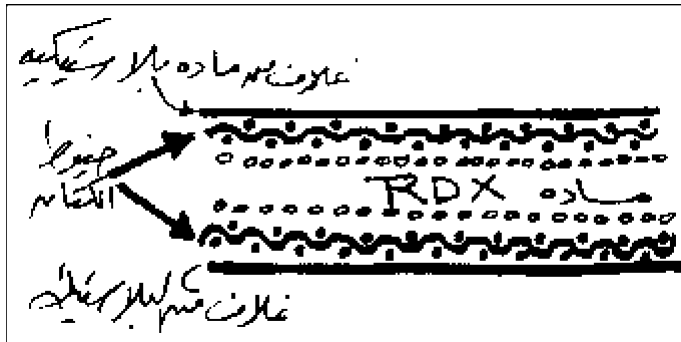 غلاف من ماده بلاستيكيه
خيوط
الكتان
ماده RDX
غلاف من البلاستيك